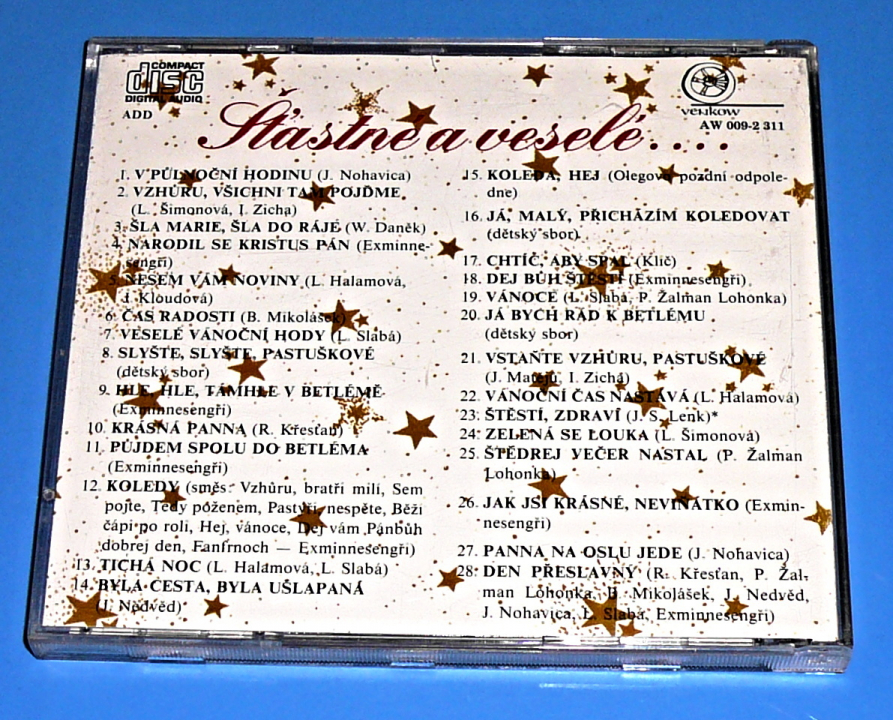 COMPACT
disc
DIGITAL AUDIO
ADD
Šťastné a veselé....
venkow
AW 009-2 311
1. V PŮLNOČNÍ HODINU (J. Nohavica)
2. VZHŮRU, VŠICHNI TAM POJĎME
(L. Šimonová, I. Zicha)
3. ŠLA MARIE, ŠLA DO RÁJE (W. Daněk)
4. NARODIL SE KRISTUS PÁN (Exminne-
sengři)
5. NESEM VÁM NOVINY (L. Halamová,
J. Kloudová)
6. ČAS RADOSTI (B. Mikolášek)
7. VESELÉ VÁNOČNÍ HODY (L. Slabá)
8. SLYŠTE, SLYŠTE, PASTUŠKOVÉ
(dětský sbor)
9. HLE, HLE, TÁMHLE V BETLÉMĚ
(Exminnesengři)
10. KRÁSNÁ PANNA (R. Křesťan)
11. PŮJDEM SPOLU DO BETLÉMA
(Exminnesengři)
12. KOLEDY (směs: Vzhůru, bratři milí, Sem
pojte, Tedy poženem, Pastýři, nespěte, Běží
čápi po roli, Hej, vánoce, Dej vám Pánbůh
dobrej den, Fanfrnoch — Exminnesengři)
13. TICHÁ NOC (L. Halamová, L. Slabá)
14. BYLA CESTA, BYLA UŠLAPANÁ
(J. Nedvěd)
15. KOLEDA, HEJ (Olegovo pozdní odpole-
dne)
16. JÁ, MALÝ, PŘICHÁZÍM KOLEDOVAT
(dětský sbor)
17. CHTÍC, ABY SPAL (Klíč)
18. DEJ BŮH ŠTĚSTÍ (Exminnesengři)
19. VÁNOCE (L. Slabá, P. Žalman Lohonka)
20. JÁ BYCH RÁD K BETLÉMU
(dětský sbor)
21. VSTAŇTE VZHŮRU, PASTUŠKOVÉ
(J. Matějů, I. Zichá)
22. VÁNOČNÍ ČAS NASTÁVÁ (L. Halamová)
23. ŠTĚSTÍ, ZDRAVÍ (J. S. Lenk)*
24. ZELENÁ SE LOUKA (L. Šimonová)
25. ŠTĚDREJ VEČER NASTAL (P. Žalman
Lohonka)
26. JAK JSI KRÁSNÉ, NEVIŇÁTKO (Exmin-
nesengři)
27. PANNA NA OSLU JEDE (J. Nohavica)
28. DEN PŘESLAVNÝ (R. Křesťan, P. Žal-
man Lohonka, B. Mikolášek, J. Nedvěd,
J. Nohavica, L. Slabá, Exminnesengři)